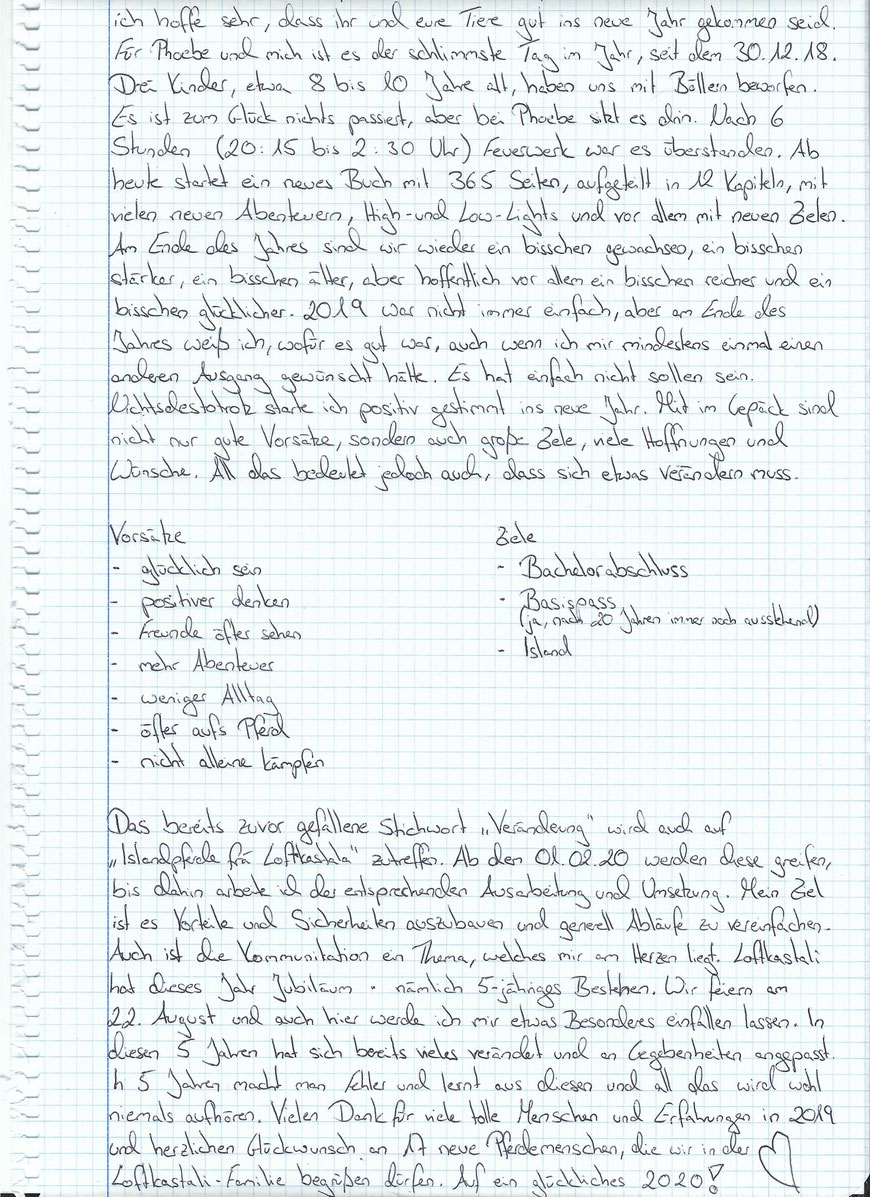 ich hoffe sehr, dass ihr und eure Tiere gut ins neue Jahr gekommen seid.
Für Phoebe und mich ist es der schlimmste Tag im Jahr, seit dem 30.12.18.
Drei Kinder, etwa 8 bis 10 Jahre alt, haben uns mit Böllern beworfen.
Es ist zum Glück nichts passiert, aber bei Phoebe sitzt es drin. Nach 6
Stunden (20:15 bis 2:30 Uhr) Feuerwerk war es überstanden. Ab
heute startet ein neues Buch mit 365 Seiten, aufgeteilt in 12 Kapiteln, mit
vielen neuen Abenteuern, High-und Low-Lights und vor allem mit neuen Zielen.
Am Ende des Jahres sind wir wieder ein bisschen gewachsen, ein bisschen
stärker, ein bisschen älter, aber hoffentlich vor allem ein bisschen reicher und ein
bisschen glücklicher. 2019 war nicht immer einfach, aber am Ende des
Jahres weiß ich, wofür es gut war, auch wenn ich mir mindestens einmal einen
anderen Ausgang gewünscht hätte. Es hat einfach nicht sollen sein.
Nichtsdestotrotz starte ich positiv gestimmt ins neue Jahr. Mit im Gepäck sind
nicht nur gute Vorsätze, sondern auch große Ziele, viele Hoffnungen und
Wünsche. All das bedeutet jedoch auch, dass sich etwas verändern muss.
Vorsätze
- glücklich sein
- positiver denken
- Freunde öfter sehen
- mehr Abenteuer
- weniger Alltag
- öfter aufs Pferd
- nicht alleine kämpfen
Ziele
- Bachelorabschluss
- Basispass
(ja, nach 20 Jahren immer noch ausstehend)
- Island
Das bereits zuvor gefallene Stichwort „Veränderung" wird auch auf
„Islandpferde frá Loftkastala" zutreffen. Ab den 01.02.20 werden diese greifen,
bis dahin arbeite ich der entsprechenden Ausarbeitung und Umsetzung. Mein Ziel
ist es Vorteile und Sicherheiten auszubauen und generell Abläufe zu vereinfachen.
Auch ist die Kommunikation ein Thema, welches mir am Herzen liegt. Loftkastali
hat dieses Jahr Jubiläum - nämlich 5-jähriges Bestehen. Wir feiern am
22. August und auch hier werde ich mir etwas Besonderes einfallen lassen. In
diesen 5 Jahren hat sich bereits vieles verändet und an Gegebenheiten angepasst.
In 5 Jahren macht man Fehler und lernt aus diesen und all das wird wohl
niemals aufhören. Vielen Dank für viele tolle Menschen und Erfahrungen in 2019
und herzlichen Glückwunsch an 17 neue Pferdemenschen, die wir in der
Loftkastali-Familie begrüßen dürfen. Auf ein glückliches 2020!